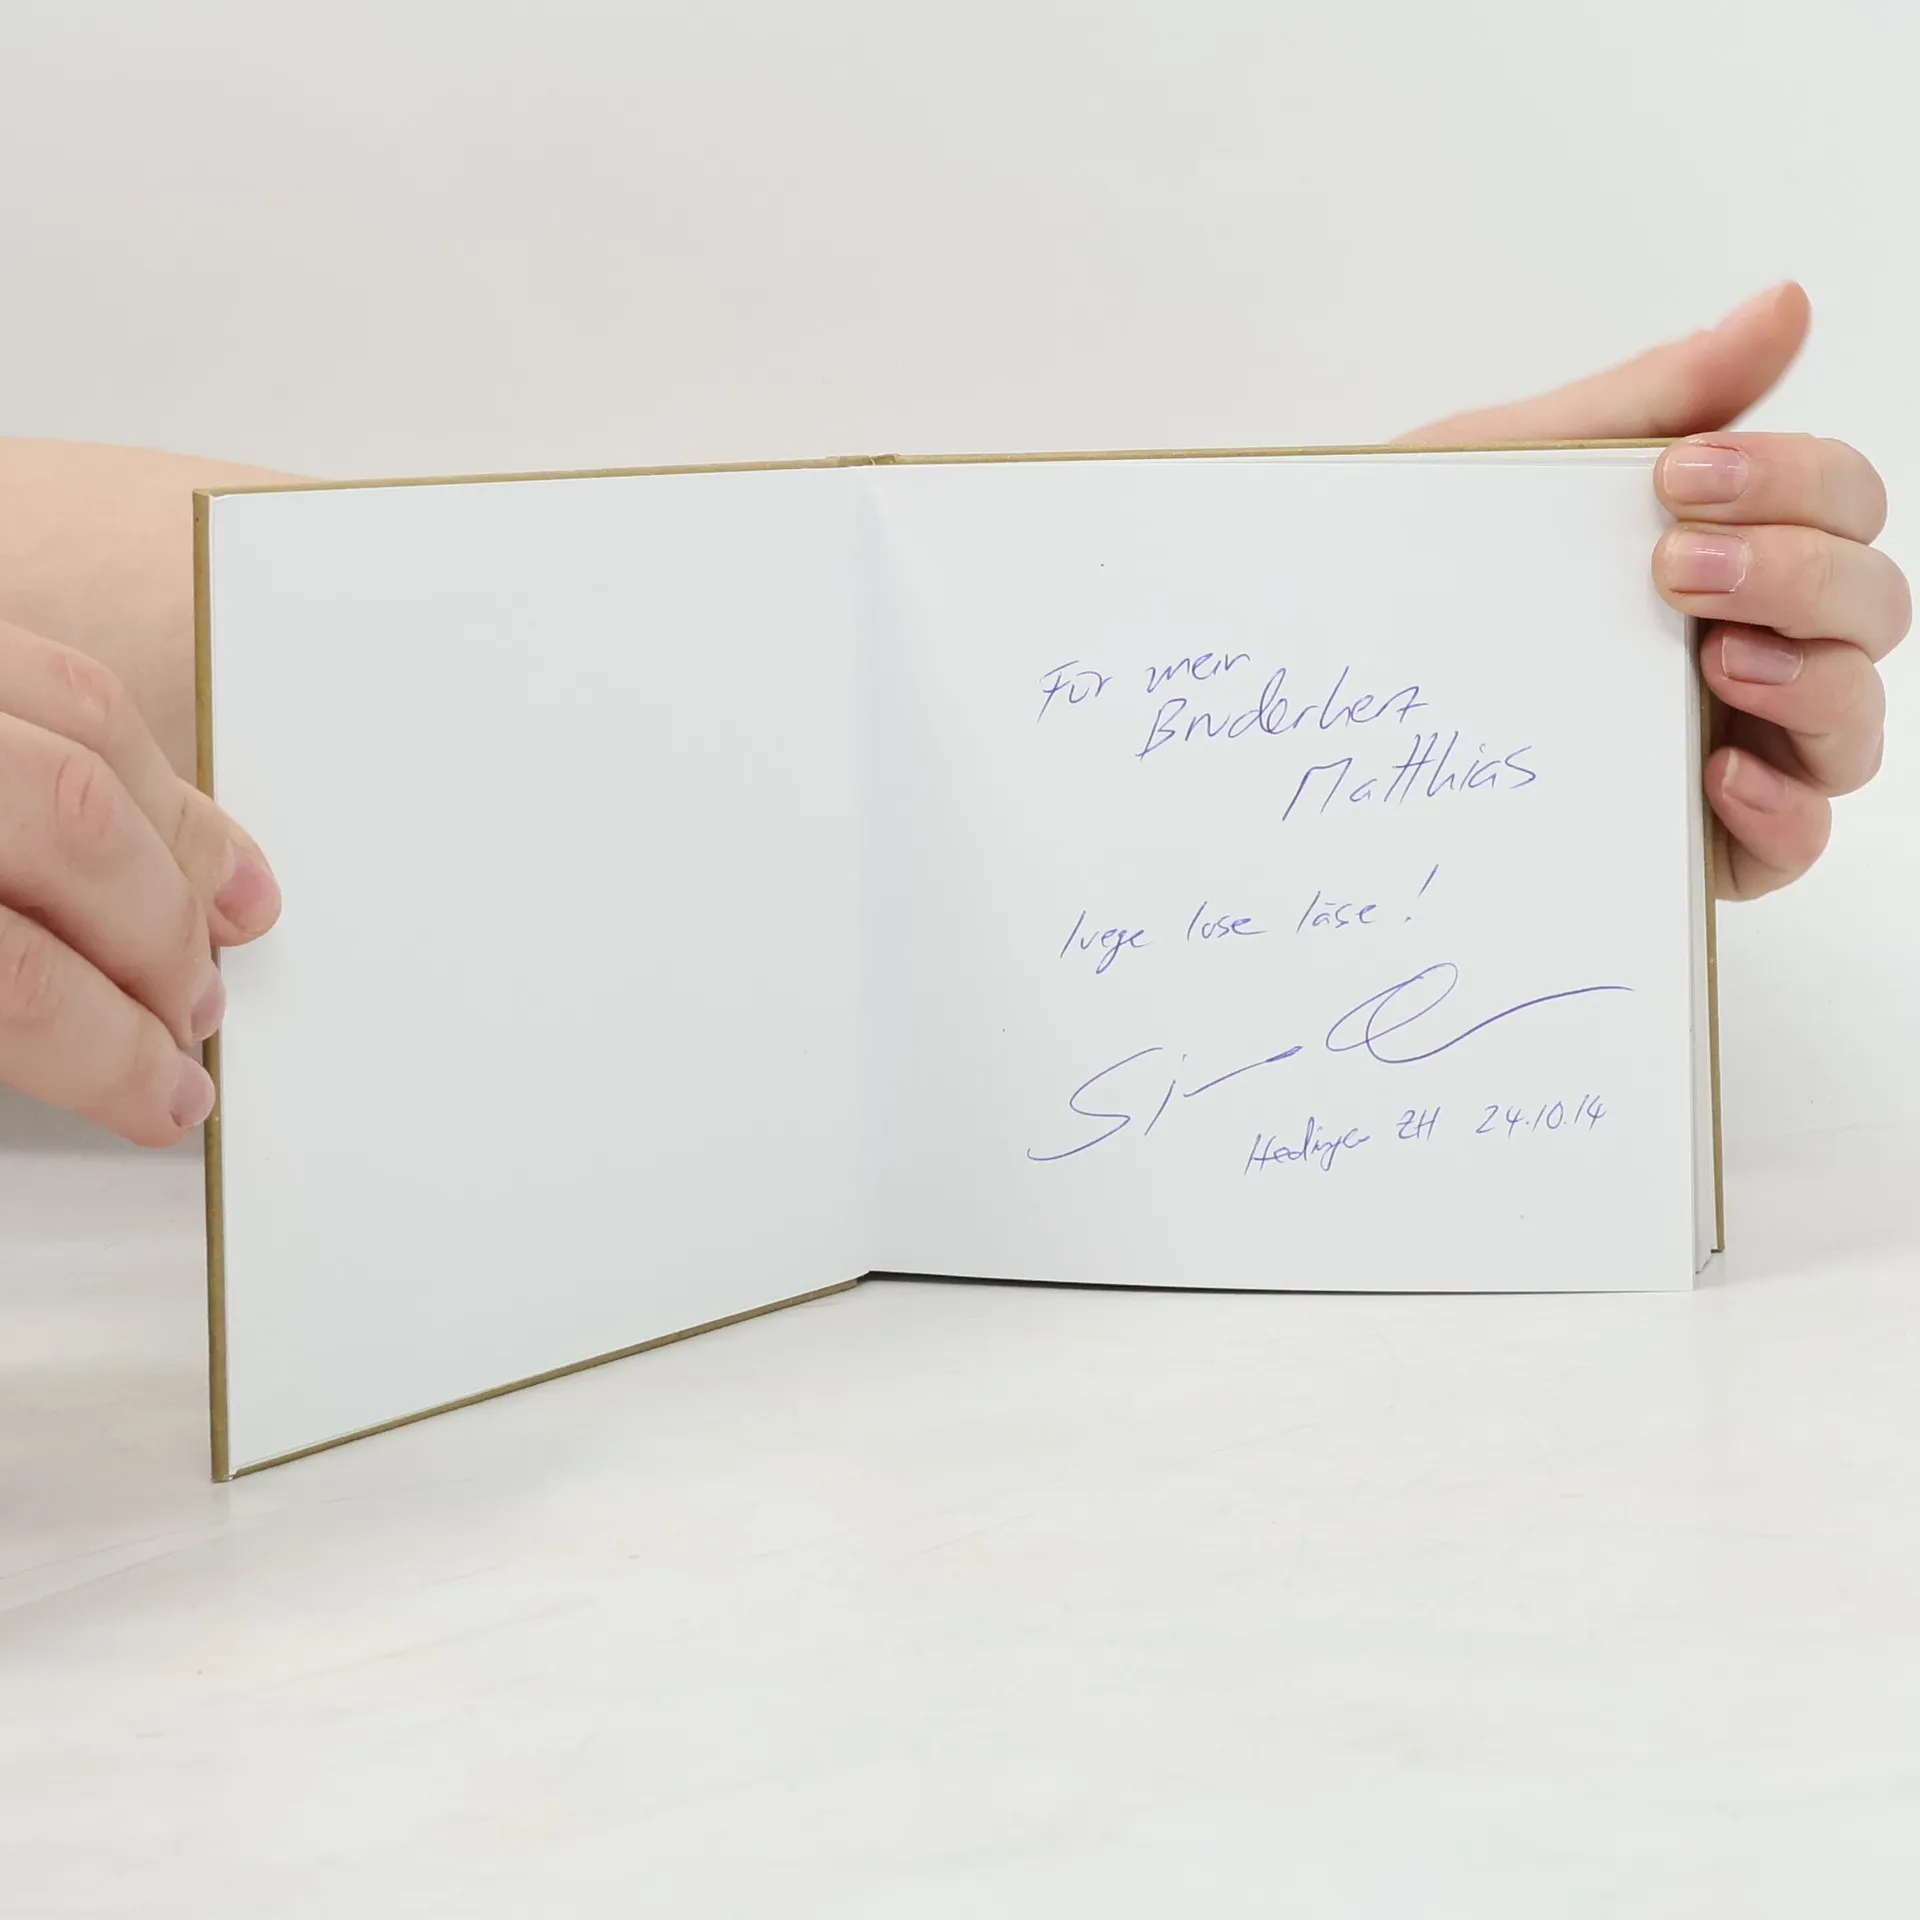 Für mein
Bruderherz
Matthias
luege lose läse!
Hedingen ZH 24.10.14